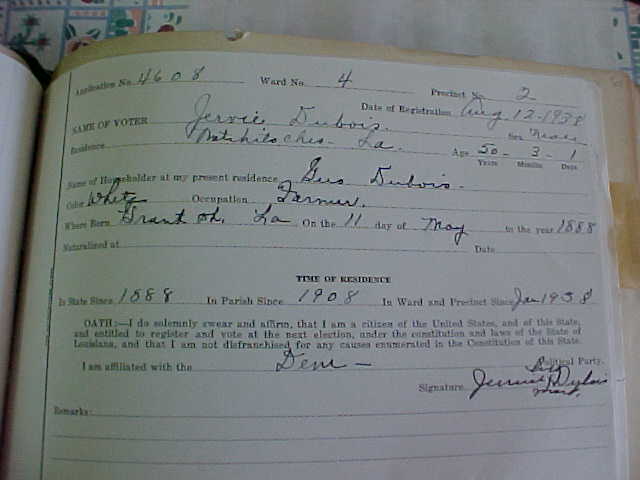 Application No. 4608 Ward No. 4 Precinct No. 2
Date of Registration Aug. 12-1938
NAME OF VOTER Jervie Dubois. Sex
Residence Natchitoches - La. Age 50 - 3 - 1
Years Months Days
Name of Householder at my present residence Gus Dubois.
Color White Occupation Farmer.
Where Born Grant Ph. La On the 11 day of May in the year 1888
Naturalized at Date
TIME OF RESIDENCE
In State Since 1888 In Parish Since 1908 In Ward and Precinct Since Jan 1938
OATH:—I do solemnly swear and affirm, that I am a citizen of the United States, and of this State,
and entitled to register and vote at the next election, under the constitution and laws of the State of
Louisiana, and that I am not disfranchised for any causes enumerated in the Constitution of this State.
I am affiliated with the Dem - Political Party.
Signature
Remarks: